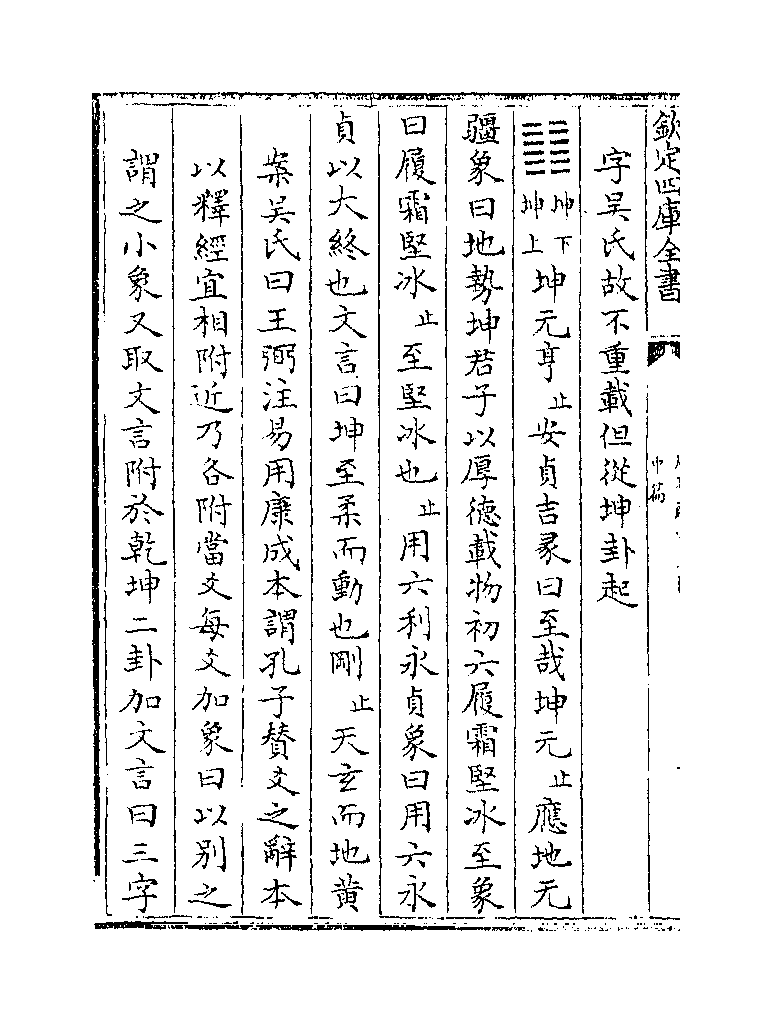 欽定四庫全書
字吳氏故不重載但從坤卦起
䷁坤下坤上坤元亨止安貞吉彖曰至哉坤元止應地无
疆象曰地勢坤君子以厚德載物初六履霜堅冰至象
曰履霜堅冰止至堅冰也止用六利永貞象曰用六永
貞以大終也文言曰坤至柔而動也剛止天玄而地黄
案吳氏曰王弼注易用康成本謂孔子贊爻之辭本
以釋經宜相附近乃各附當爻每爻加象曰以别之
謂之小象又取文言附於乾坤二卦加文言曰三字